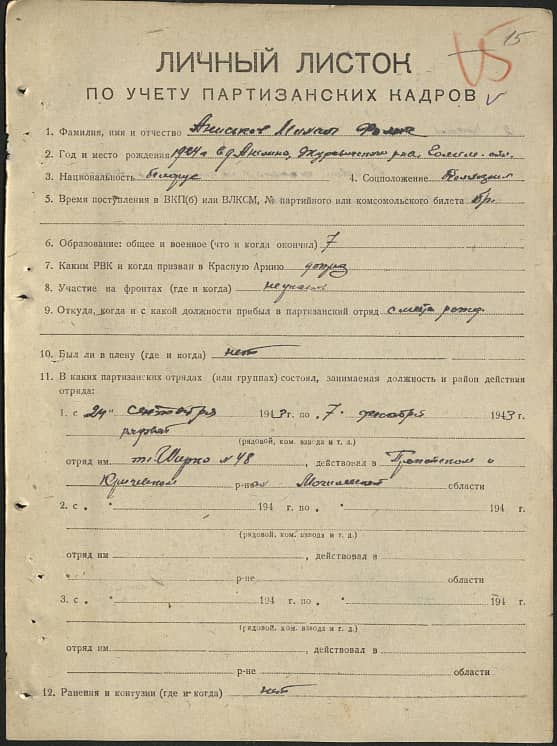 15
ЛИЧНЫЙ ЛИСТОК
ПО УЧЕТУ ПАРТИЗАНСКИХ КАДРОВ
1. Фамилия, имя и отчество Аниськов Михаил
2. Год и место рождения 1924 г.
3. Национальность белорус 4. Соцположение
5. Время поступления в ВКП(б) или ВЛКСМ, № партийного или комсомольского билета бп.
6. Образование: общее и военное (что и когда окончил) 7
7. Каким РВК и когда призван в Красную Армию доприз
8. Участие на фронтах (где и когда) не участв
9. Откуда, когда и с какой должности прибыл в партизанский отряд с места рожд.
10. Был ли в плену (где и когда) нет
11. В каких партизанских отрядах (или группах) состоял, занимаемая должность и район действия
отряда:
1. с "24" сентября 1943 г. по "7" декабря 1943 г.
рядовой
(рядовой, ком. взвода и т. д.)
отряд им. т. Ширко № 48, действовал в Пропойском и
Кричевском р-нах Могилевской области
2. с " " 194 г. по " " 194 г.
(рядовой, ком. взвода и т. д.)
отряд им , действовал в
р-не области
3. с " " 194 г. по " " 194 г.
(рядовой, ком. взвода и т. д.)
отряд им. , действовал в
р-не области
12. Ранения и контузии (где и когда) нет